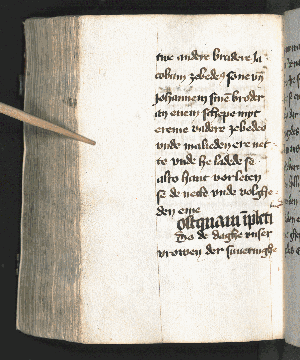 twe andere brodere Ja
cobum zebedeꝰ sone vñ
Johannem sinē broder
an enem schepe myt
ereme vadere zebedeo
vnde maleden ere net
te vnde he ladede se
alto hant vorleten
se de nette vnde volghe
den eme
ostquam īpleti
Do de daghe vnser
vrowen der suueringhe